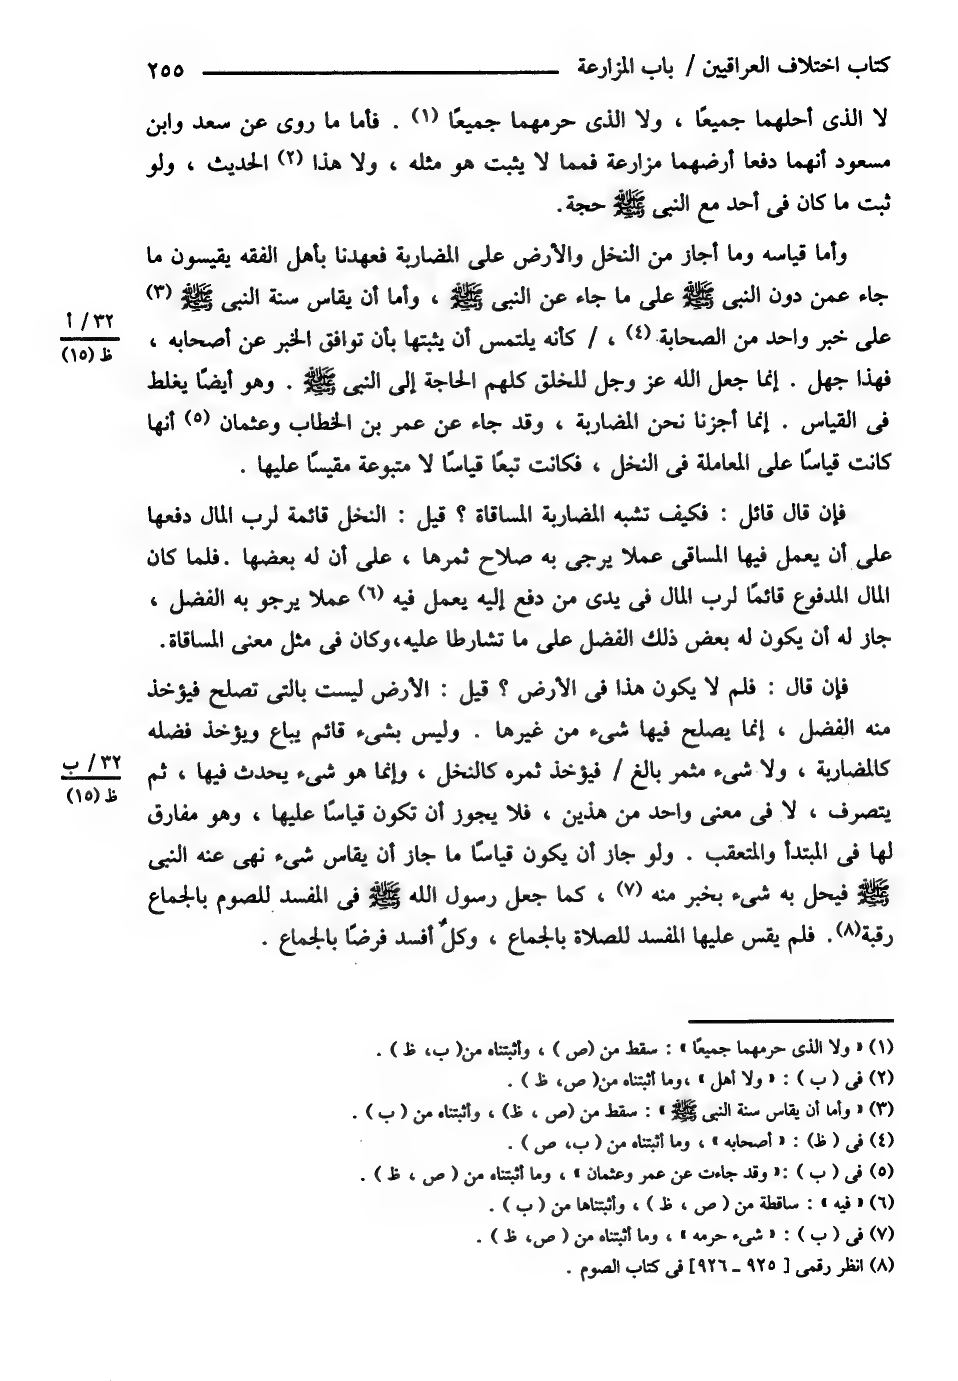 كتاب اختلاف العراقيين / باب المزارعة ٢٥٥
لا الذى أحلهما جميعًا ، ولا الذى حرمهما جميعًا (١) . فأما ما روى عن سعد وابن
مسعود أنهما دفعا أرضهما مزارعة فمما لا يثبت هو مثله ، ولا هذا (٢) الحديث ، ولو
ثبت ما كان فى أحد مع النبى ﷺ حجة.
وأما قياسه وما أجاز من النخل والأرض على المضاربة فعهدنا بأهل الفقه يقيسون ما
جاء عمن دون النبى ﷺ على ما جاء عن النبى ﷺ ، وأما أن يقاس سنة النبى ﷺ (٣)
على خبر واحد من الصحابة (٤) ، / كأنه يلتمس أن يثبتها بأن توافق الخبر عن أصحابه ،
٣٢/ أ
ظ (١٥)
فهذا جهل . إنما جعل الله عز وجل للخلق كلهم الحاجة إلى النبى ﷺ . وهو أيضًا يغلط
فى القياس . إنما أجزنا نحن المضاربة ، وقد جاء عن عمر بن الخطاب وعثمان (٥) أنها
كانت قياسًا على المعاملة فى النخل ، فكانت تبعًا قياسًا لا متبوعة مقيسًا عليها .
فإن قال قائل : فكيف تشبه المضاربة المساقاة ؟ قيل : النخل قائمة لرب المال دفعها
على أن يعمل فيها المساقى عملا يرجى به صلاح ثمرها ، على أن له بعضها . فلما كان
المال المدفوع قائمًا لرب المال فى يدى من دفع إليه يعمل فيه (٦) عملا يرجو به الفضل ،
جاز له أن يكون له بعض ذلك الفضل على ما تشارطا عليه،وكان فى مثل معنى المساقاة.
فإن قال : فلم لا يكون هذا فى الأرض ؟ قيل : الأرض ليست بالتى تصلح فيؤخذ
منه الفضل ، إنما يصلح فيها شىء من غيرها . وليس بشىء قائم يباع ويؤخذ فضله
كالمضاربة ، ولا شىء مثمر بالغ / فيؤخذ ثمره كالنخل ، وإنما هو شىء يحدث فيها ، ثم
٣٢/ ب
ظ (١٥)
يتصرف ، لا فى معنى واحد من هذين ، فلا يجوز أن تكون قياسًا عليها ، وهو مفارق
لها فى المبتدأ والمتعقب . ولو جاز أن يكون قياسًا ما جاز أن يقاس شىء نهى عنه النبى
ﷺ فيحل به شىء بخبر منه (٧) ، كما جعل رسول الله ﷺ فى المفسد للصوم بالجماع
رقبة(٨). فلم يقس عليها المفسد للصلاة بالجماع ، وكلٌ أفسد فرضًا بالجماع .
(١) « ولا الذى حرمهما جميعًا » : سقط من (ص) ، وأثبتناه من( ب، ظ ) .
(٢) فى ( ب ) : « ولا أهل » ،وما أثبتناه من( ص، ظ ) .
(٣) « وأما أن يقاس سنة النبى ﷺ » : سقط من (ص ، ظ) ، وأثبتناه من ( ب ) .
(٤) فى ( ظ) : « أصحابه » ، وما أثبتناه من ( ب، ص ) .
(٥) فى ( ب ) :« وقد جاءت عن عمر وعثمان » ، وما أثبتناه من ( ص ، ظ ) .
(٦) « فيه » : ساقطة من ( ص ، ظ ) ، وأثبتناها من ( ب ) .
(٧) فى ( ب ) : « شىء حرمه » ، وما أثبتناه من ( ص، ظ ) .
(٨) انظر رقمى [ ٩٢٥ ـ ٩٢٦] فى كتاب الصوم .